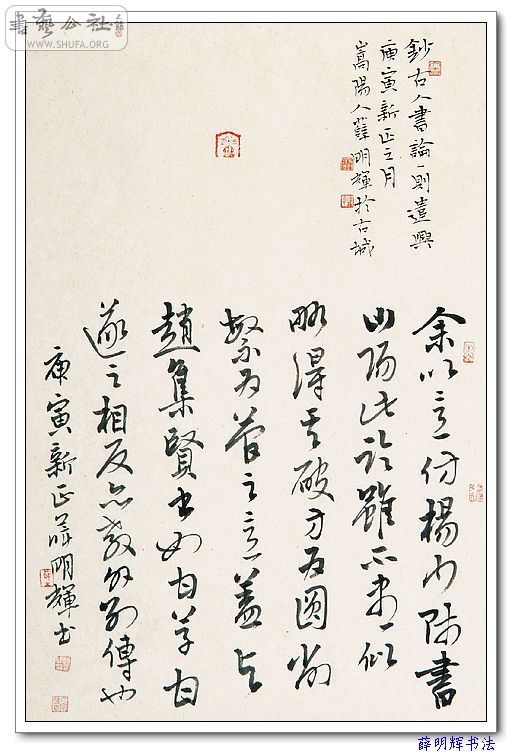 書藝公社
WWW.SHUFA.ORG
鈔古人書論一則遣興
庚寅新正之月
嵩陽人薛明輝於古城
余以意仿楊少師書
山陽此論雖不盡似
略得其破方為圓削
繁為簡之意蓋與
趙集賢書如甘草甘
遂之相反亦教外別傳也
庚寅新正薛明輝書
薛明辉书法